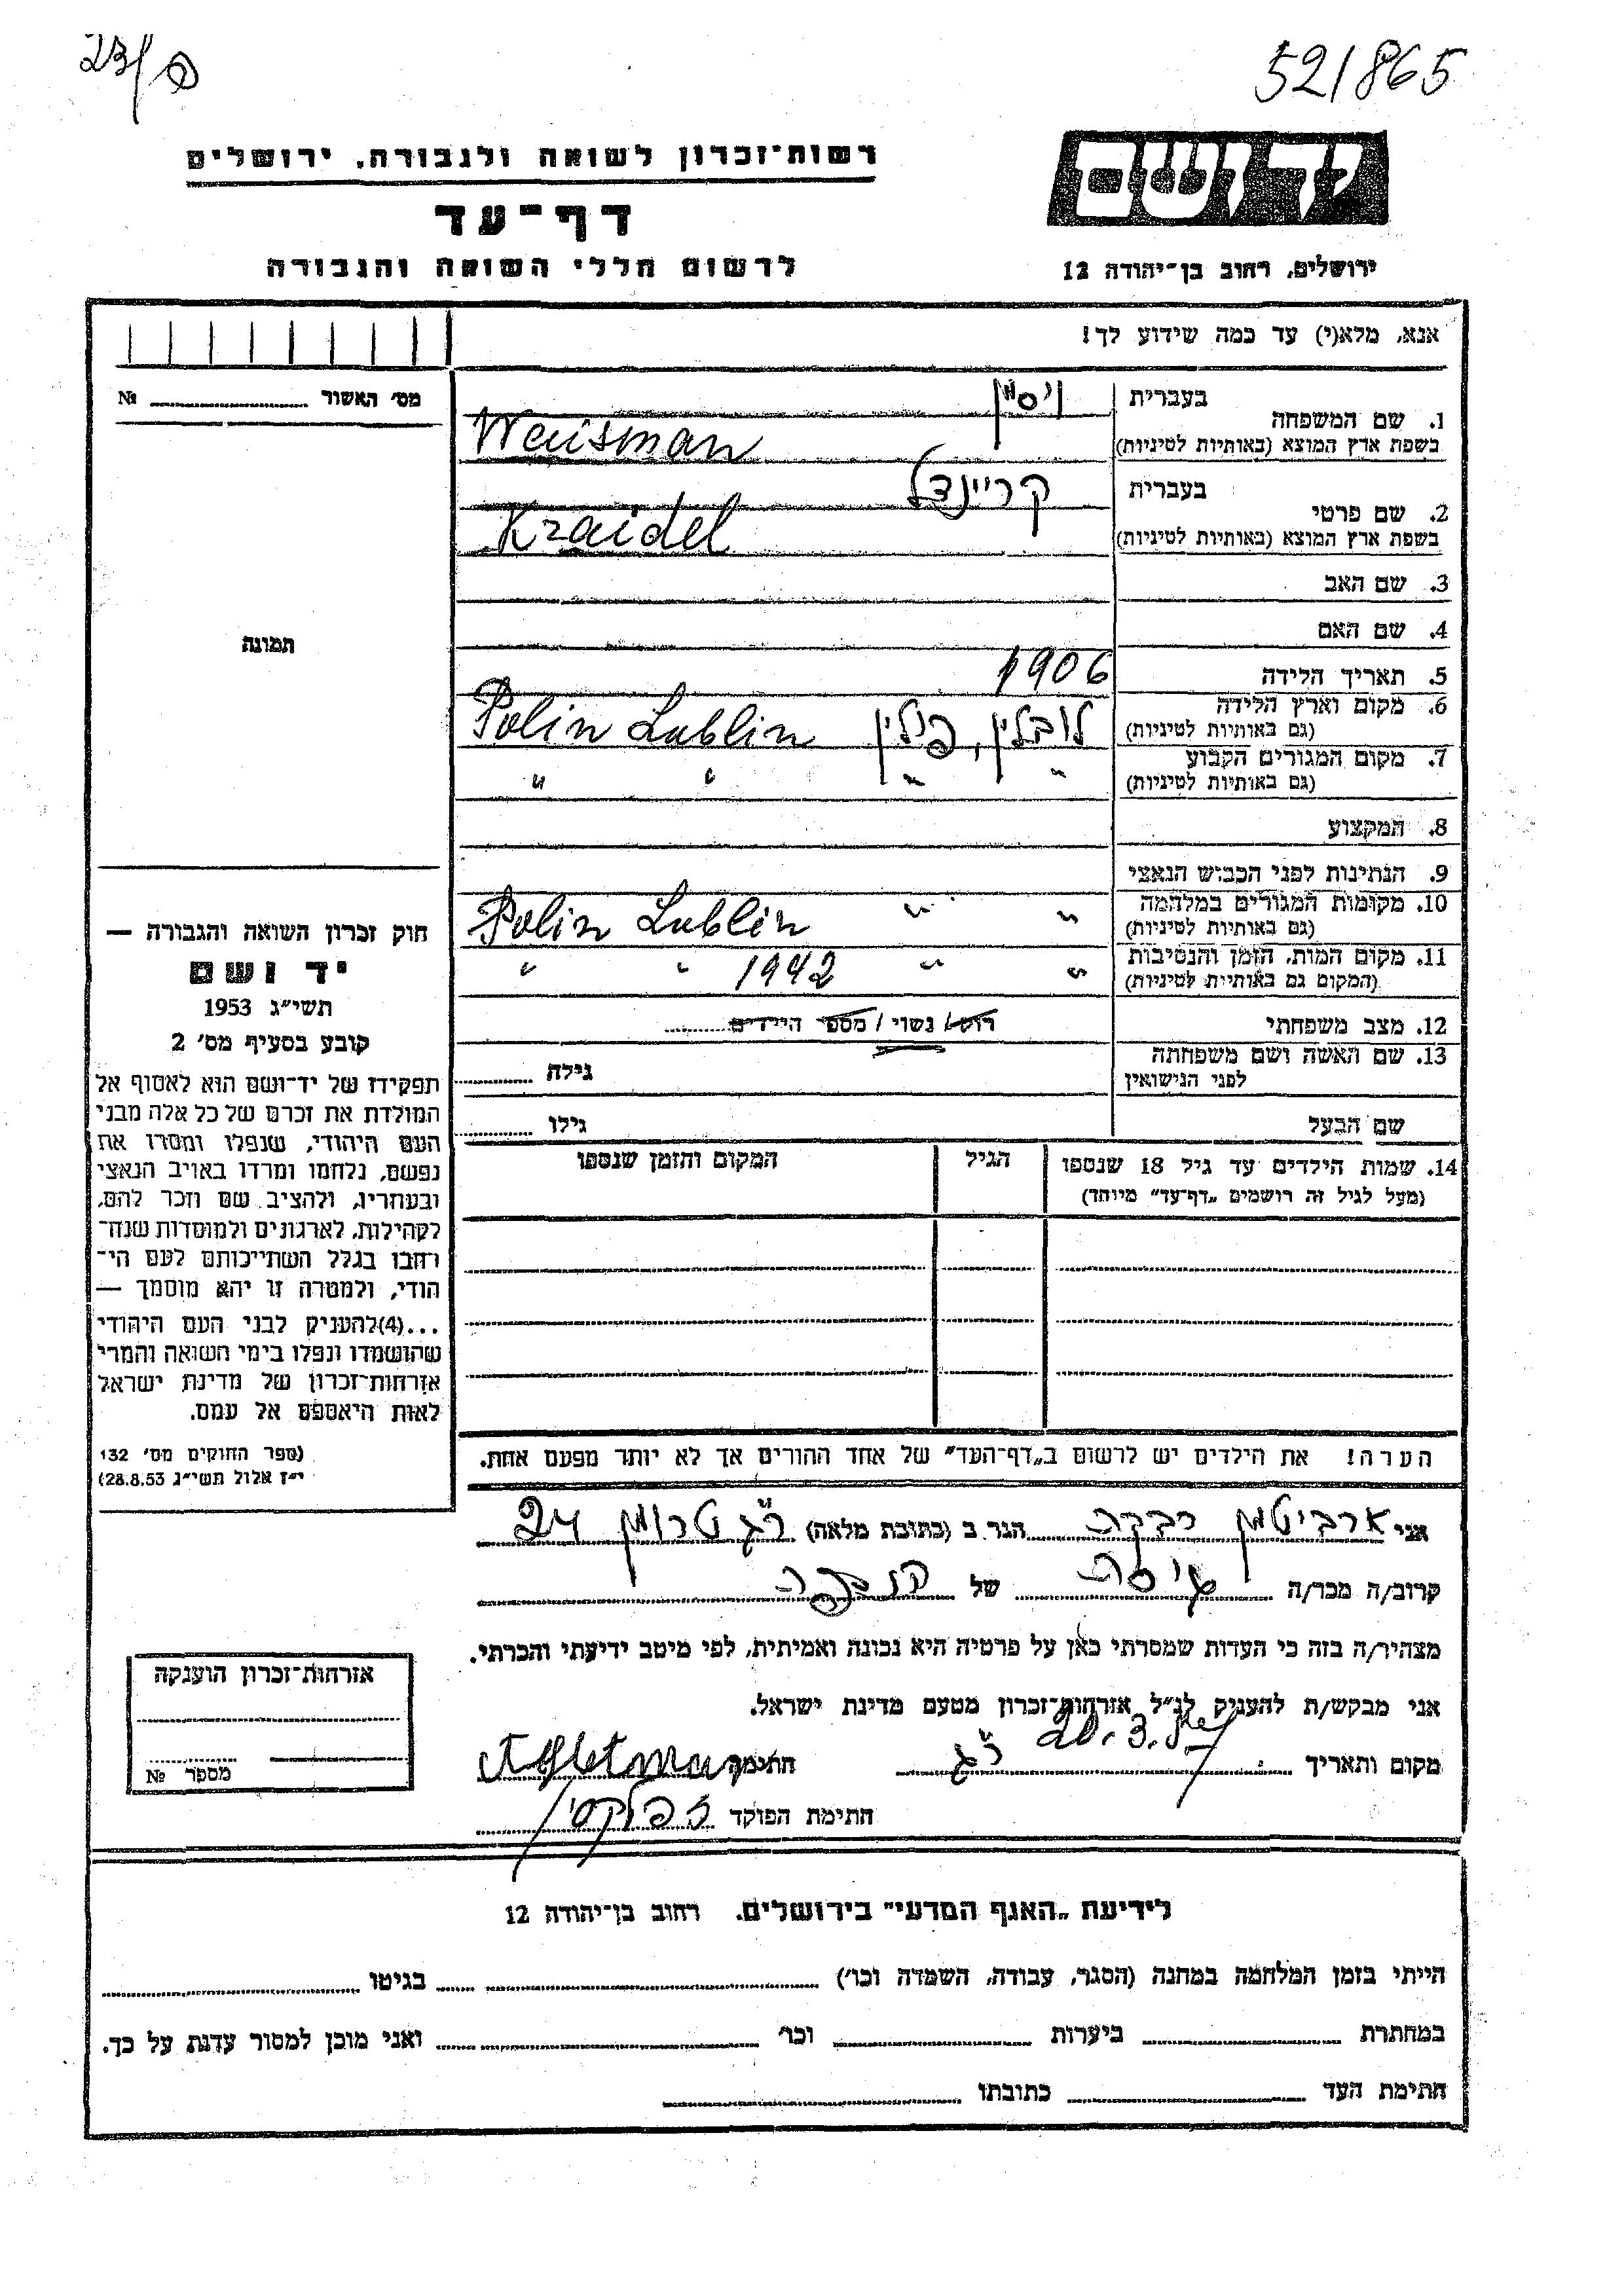 23/פ
521865
יד ושם
רשות־זכרון לשואה ולגבורה, ירושלים
דף־עד
לרשום חללי השואה והגבורה
ירושלים, רחוב בן־יהודה 12
אנא, מלא(י) עד כמה שידוע לך!
מס' האשור № 
1. שם המשפחה
בעברית
ויסמן
בשפת ארץ המוצא (באותיות לטיניות)
Waisman
2. שם פרטי
בעברית
קריינדל
בשפת ארץ המוצא (באותיות לטיניות)
Kraidel
3. שם האב
4. שם האם
5. תאריך הלידה 1906
6. מקום וארץ הלידה
(גם באותיות לטיניות)
לובלין, פולין Polin Lublin
7. מקום המגורים הקבוע
(גם באותיות לטיניות)
" " " "
8. המקצוע
9. הנתינות לפני הכבוש הנאצי
10. מקומות המגורים במלחמה
(גם באותיות לטיניות)
" " Polin Lublin
11. מקום המות, הזמן והנסיבות
(המקום גם באותיות לטיניות)
" " 1942 " "
12. מצב משפחתי
רווק / נשוי / מספר הילדים
13. שם האשה ושם משפחתה
לפני הנישואין
גילה
שם הבעל
גילו
14. שמות הילדים עד גיל 18 שנספו
(מעל לגיל זה רושמים „דף־עד" מיוחד)
הגיל
המקום והזמן שנספו
הערה! את הילדים יש לרשום ב„דף־העד" של אחד ההורים אך לא יותר מפעם אחת.
תמונה
חוק זכרון השואה והגבורה —
יד ושם
תשי"ג 1953
קובע בסעיף מס' 2
תפקידו של יד־ושם הוא לאסוף אל
המולדת את זכרם של כל אלה מבני
העם היהודי, שנפלו ומסרו את
נפשם, נלחמו ומרדו באויב הנאצי
ובעוזריו, ולהציב שם וזכר להם,
לקהילות, לארגונים ולמוסדות שנח־
רבו בגלל השתייכותם לעם הי־
הודי, ולמטרה זו יהא מוסמך —
...(4) להעניק לבני העם היהודי
שהושמדו ונפלו בימי השואה והמרי
אזרחות־זכרון של מדינת ישראל
לאות היאספם אל עמם.
(ספר החוקים מס' 132
י"ז אלול תשי"ג 28.8.53)
אני ארביטמן רבקה הגר ב (כתובת מלאה) ר"ג טרומן 24
קרוב/ה מכר/ה גיסה של
מצהיר/ה בזה כי העדות שמסרתי כאן על פרטיה היא נכונה ואמיתית, לפי מיטב ידיעתי והכרתי.
אני מבקש/ת להעניק לנ"ל אזרחות־זכרון מטעם מדינת ישראל.
מקום ותאריך ר"ג 20.3. חתימה
חתימת הפוקד
אזרחות־זכרון הוענקה
מספר №
לידיעת „האגף המדעי" בירושלים. רחוב בן־יהודה 12
הייתי בזמן המלחמה במחנה (הסגר, עבודה, השמדה וכו') בגיטו
במחתרת ביערות וכו' ואני מוכן למסור עדות על כך.
חתימת העד כתובתו